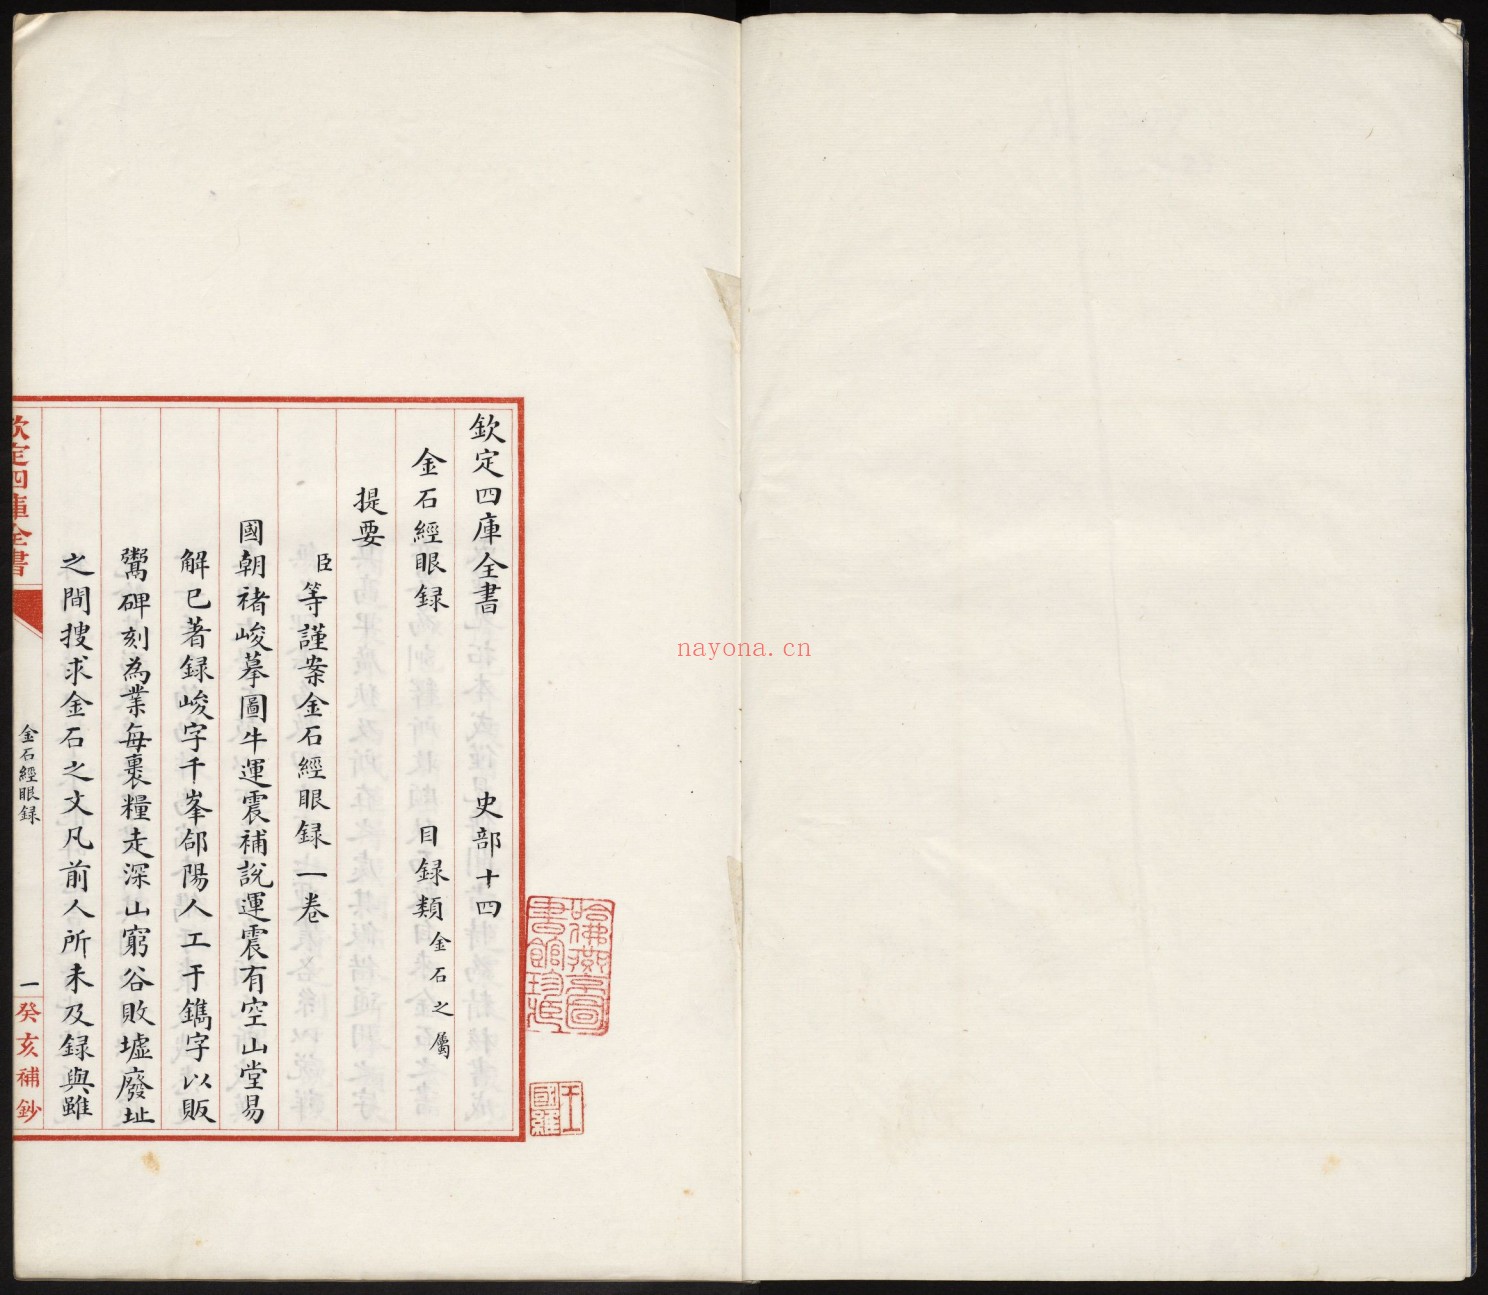 欽定四庫全書　史部十四
金石經眼録　目録類金石之屬
提要
臣等謹案金石經眼録一卷
國朝褚峻摹圖牛運震補說運震有空山堂易
解已著録峻字千峯郃陽人工于鐫字以販
鬻碑刻為業每裹糧走深山窮谷敗墟廢址
之間搜求金石之文凡前人所未及録與雖
欽定四庫全書
金石經眼録
一
癸亥補鈔
哈佛燕京圖書館珍藏
nayona.cn